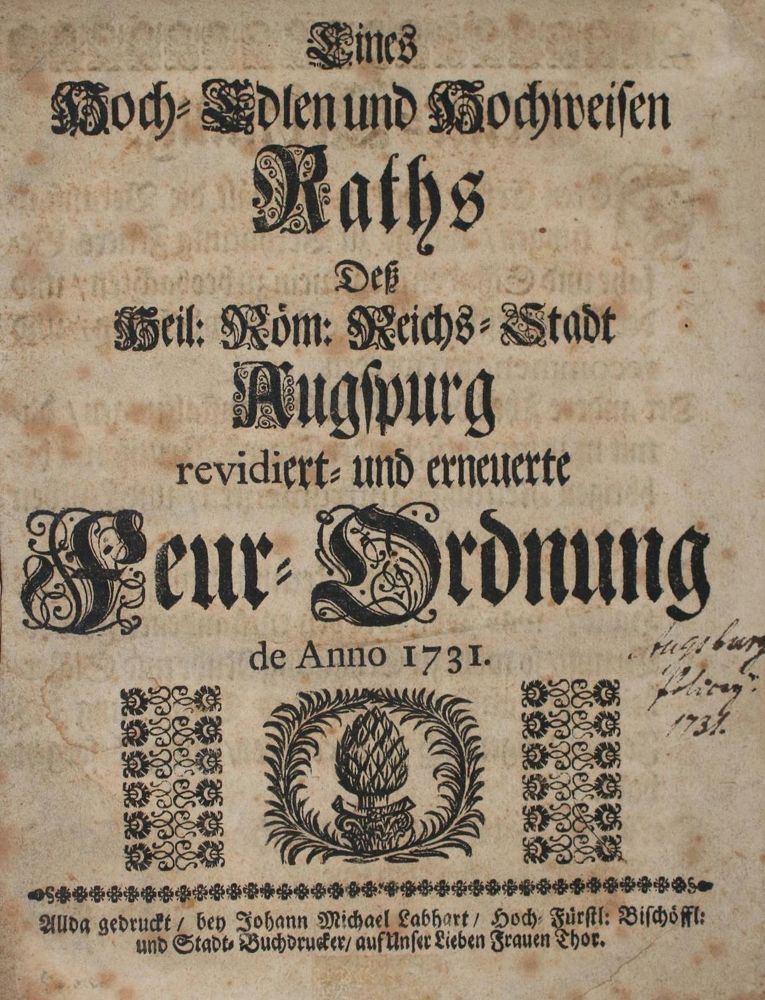 Eines
Hoch-Edlen und Hochweisen
Raths
Deß
Heil: Röm: Reichs-Stadt
Augspurg
revidiert- und erneuerte
Feur-Ordnung
de Anno 1731.
Augsburg
Policey
1731.
Allda gedruckt / bey Johann Michael Labhart / Hoch-Fürstl: Bischöffl:
und Stadt-Buchdrucker / auf Unser Lieben Frauen Thor.